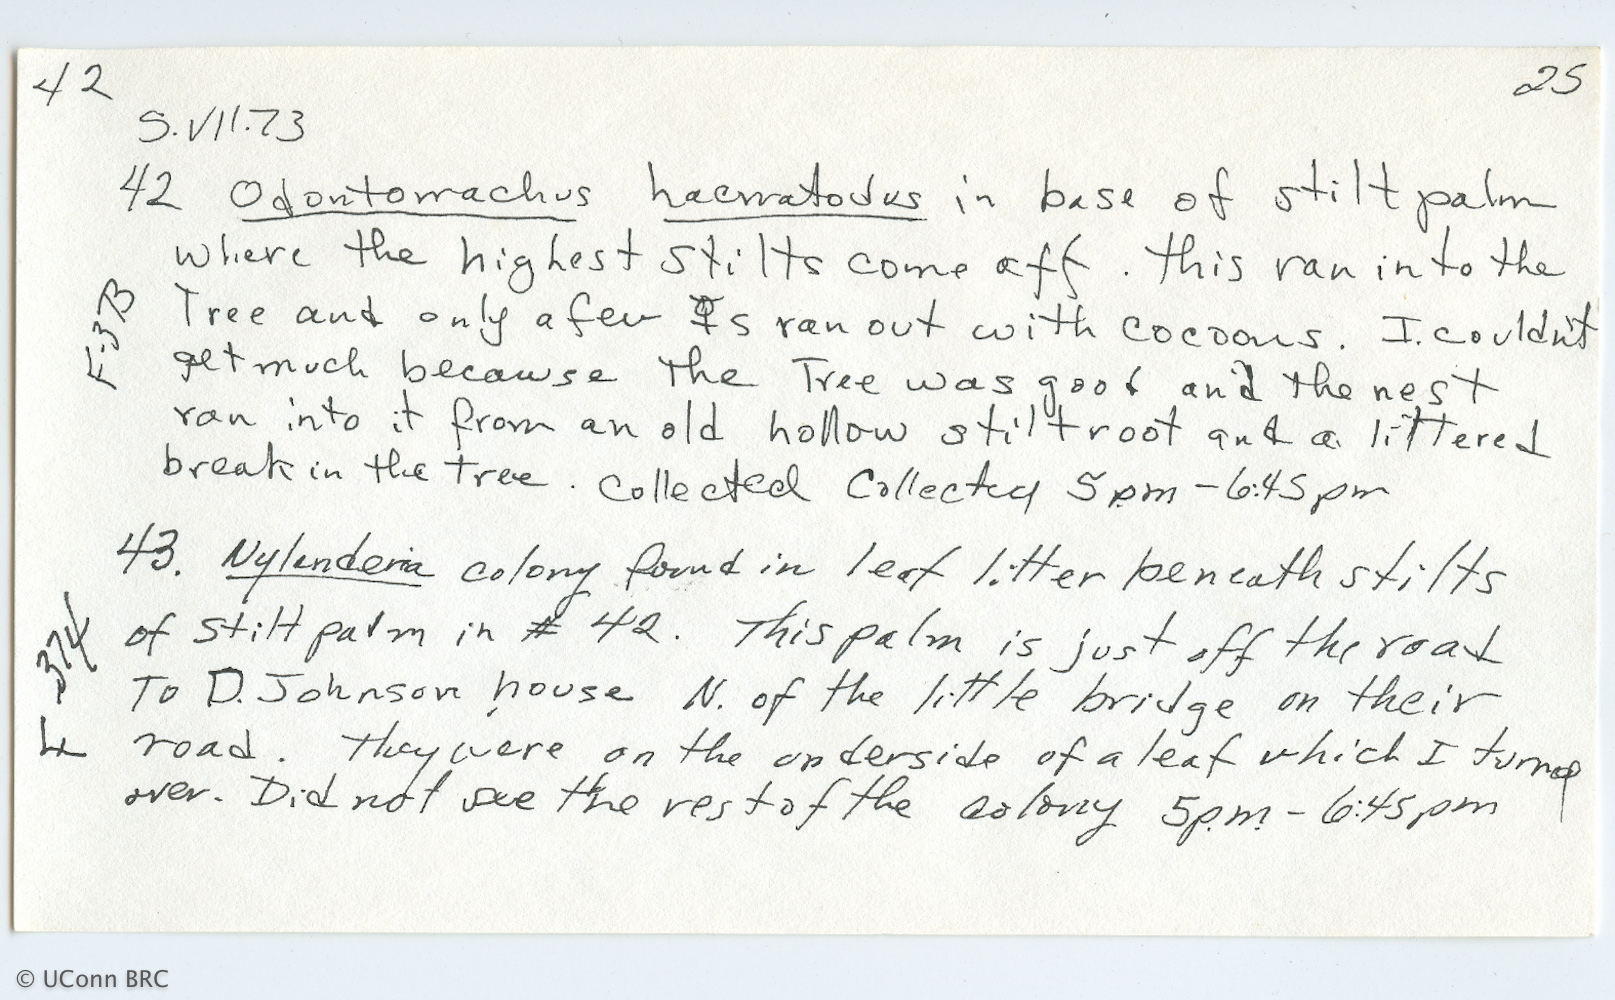 42
25
5.VII.73
42 Odontomachus haematodus in base of stilt palm
where the highest stilts come off. This ran into the
F-37B
Tree and only a few ☿s ran out with cocoons. I couldn't
get much because the Tree was good and the nest
ran into it from an old hollow stilt root and a littered
break in the tree. Collected Collected 5pm - 6:45pm
43. Nylanderia colony found in leaf litter beneath stilts
F-374
of stilt palm in # 42. This palm is just off the road
To D. Johnson house N. of the little bridge on their
road. They were on the underside of a leaf which I turned
over. Did not see the rest of the colony 5p.m. - 6:45pm
© UConn BRC